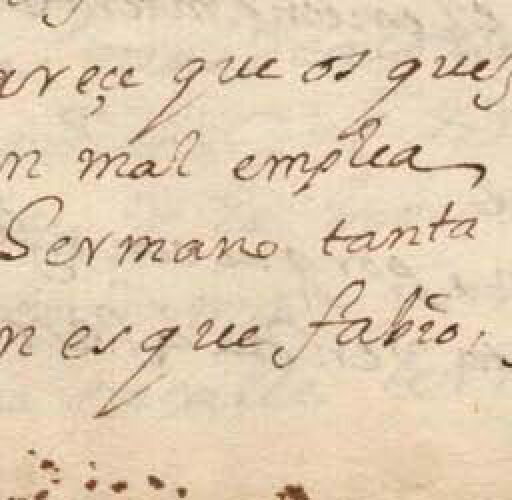 areçe que os quej
n mal emplea
Sermano tanta
n es que fabio,